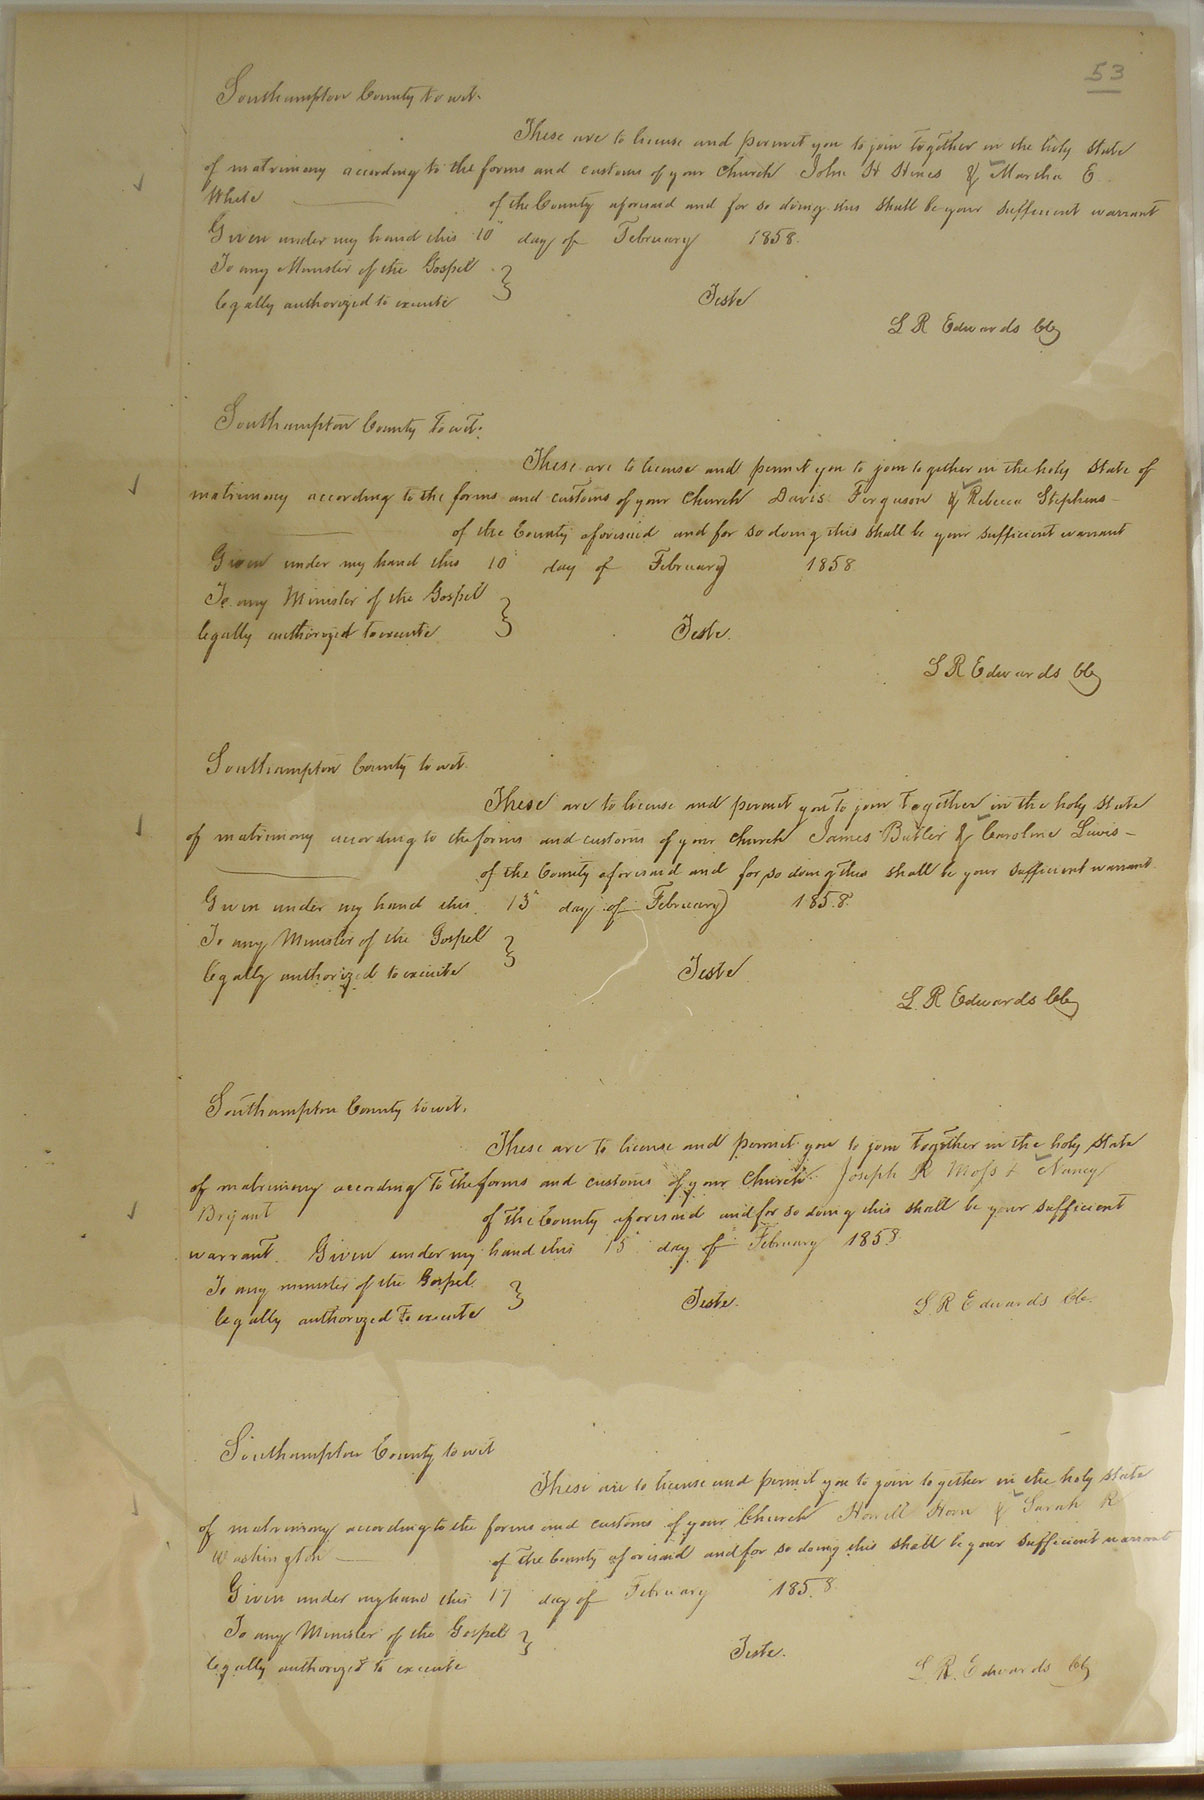 53
Southampton County to wit.
These are to license and permit you to join together in the holy state
of matrimony according to the forms and customs of your Church John H Hines & Martha E
White of the County aforesaid and for so doing this shall be your sufficient warrant
Given under my hand this 10 day of February 1858.
To any Minister of the Gospel
legally authorized to execute Teste
L R Edwards Clk
Southampton County to wit:
These are to license and permit you to join together in the holy State of
matrimony according to the forms and customs of your Church Davis Ferguson & Rebecca Stephens
of the County aforesaid and for so doing this shall be your sufficient warrant
Given under my hand this 10 day of February 1858
To any Minister of the Gospel
legally authorized to execute Teste.
L R Edwards Clk
Southampton County to wit.
These are to license and permit you to join together in the holy state
of matrimony according to the forms and customs of your Church James Butler & Caroline Lewis
of the County aforesaid and for so doing this shall be your sufficient warrant
Given under my hand this 15 day of February 1858.
To any Minister of the Gospel
legally authorized to execute Teste
L. R Edwards Clk
Southampton County to wit.
These are to license and permit you to join together in the holy state
of matrimony according to the forms and customs of your Church Joseph R Moss & Nancy
Bryant of the County aforesaid and for so doing this shall be your sufficient
warrant. Given under my hand this 15 day of February 1858
To any minister of the Gospel
legally authorized to execute Teste. L R Edwards Clk.
Southampton County to wit
These are to license and permit you to join together in the holy state
of matrimony according to the forms and customs of your Church Howell Horn & Sarah R
Washington of the County aforesaid and for so doing this shall be your sufficient warrant
Given under my hand this 17 day of February 1858.
To any Minister of the Gospel
legally authorized to execute Teste.
L. R. Edwards Clk